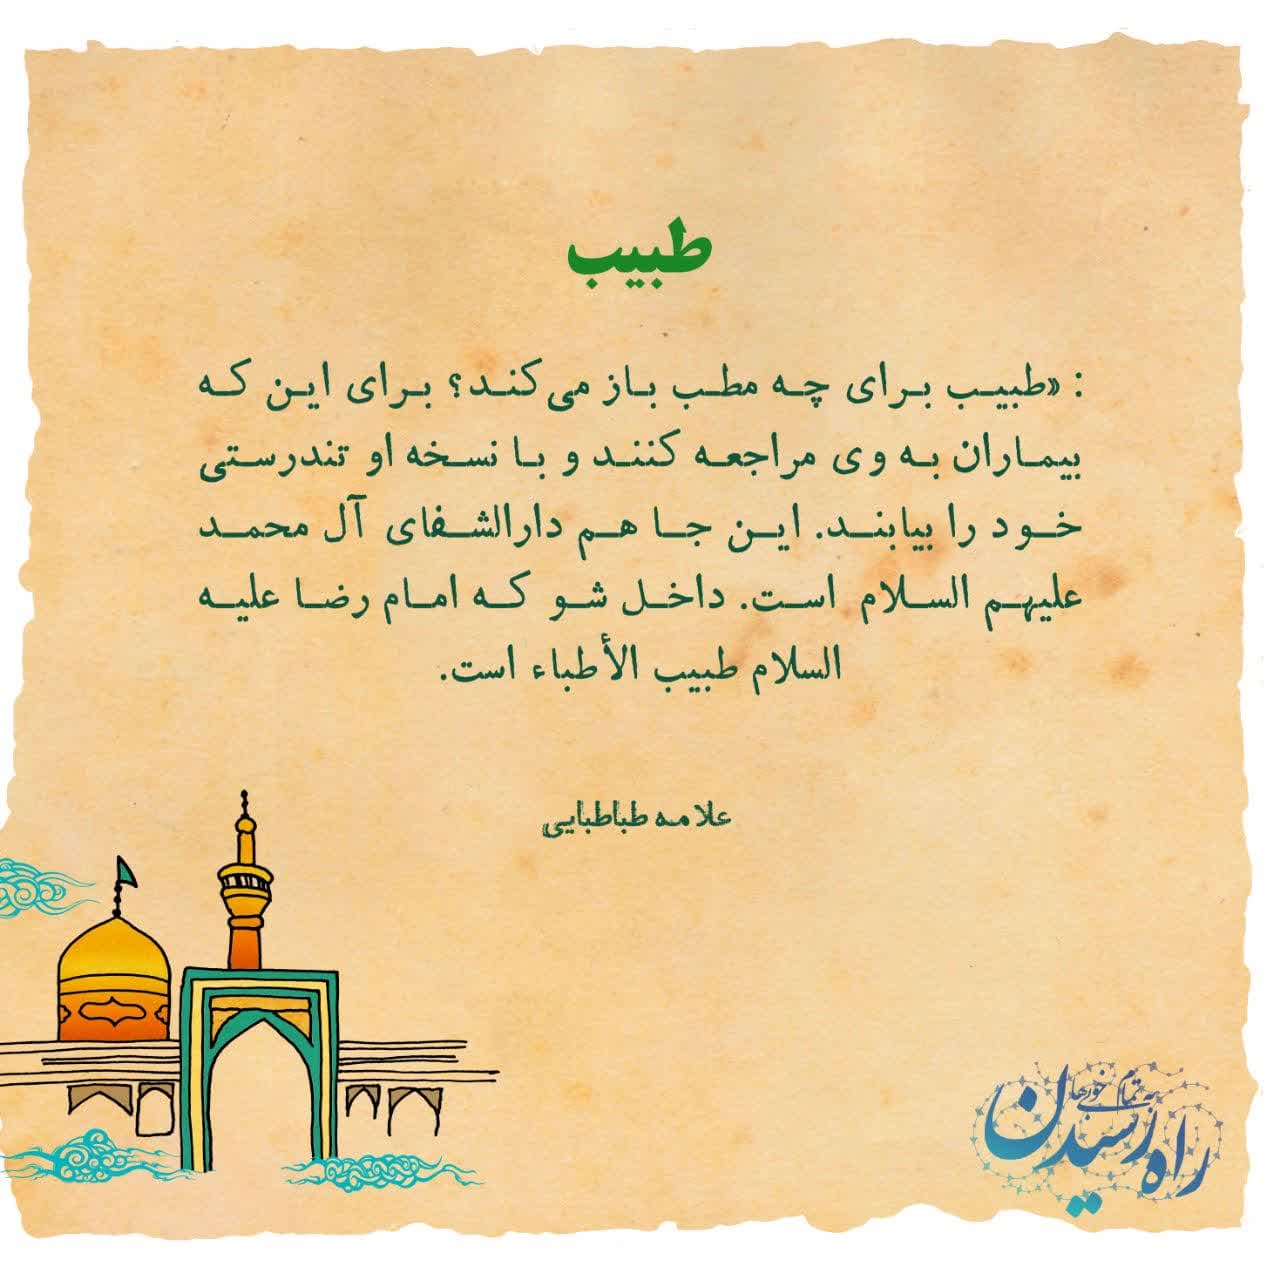 طبیب
: «طبیب برای چه مطب باز می‌کند؟ برای این که
بیماران به وی مراجعه کنند و با نسخه او تندرستی
خود را بیابند. این جا هم دارالشفای آل محمد
علیهم السلام است. داخل شو که امام رضا علیه
السلام طبیب الأطباء است.
علامه طباطبایی
راه رسیدن
به تمام خوبی‌ها